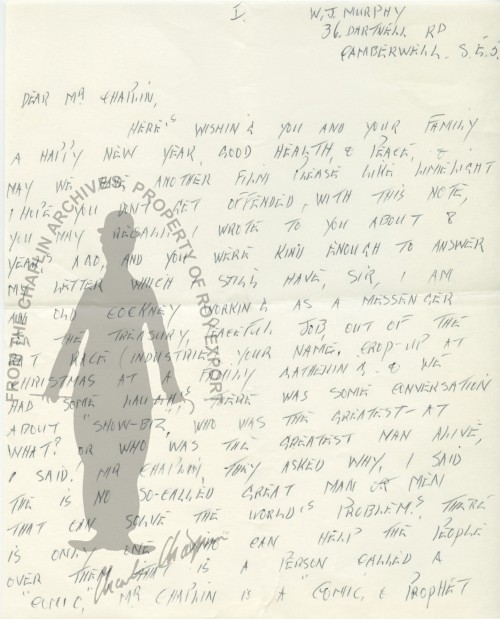 I.
W. J. MURPHY
36. DARTNELL RD
CAMBERWELL. S.E.5.
DEAR MR CHAPLIN,
HERE'S WISHING YOU AND YOUR FAMILY
A HAPPY NEW YEAR, GOOD HEALTH, & PEACE, &
MAY WE SEE ANOTHER FILM PLEASE LIKE LIMELIGHT
I HOPE YOU DON'T GET OFFENDED, WITH THIS NOTE,
YOU MAY RECALL I WROTE TO YOU ABOUT 8
YEARS AGO, AND YOU WERE KIND ENOUGH TO ANSWER
MY LETTER WHICH I STILL HAVE, SIR, I AM
AN OLD COCKNEY WORKING AS A MESSENGER
THE TREASURY, PEACEFUL JOB OUT OF THE
RAT RACE (INDUSTRIES) YOUR NAME, CROP-UP AT
CHRISTMAS AT A FAMILY GATHERING. & WE
HAD SOME LAUGHS, THERE WAS SOME CONVERSATION
ABOUT "SHOW-BIZ, WHO WAS THE GREATEST-AT
WHAT? OR WHO WAS THE GREATEST MAN ALIVE,
I SAID: MR CHAPLIN, THEY ASKED WHY, I SAID
THE IS NO SO-CALLED GREAT MAN OR MEN
THAT CAN SOLVE THE WORLD'S PROBLEM'S THERE
IS ONLY ONE WHO CAN HELP THE PEOPLE
OVER THEM THAT IS A PERSON CALLED A
"COMIC," MR CHAPLIN IS A "COMIC, & PROPHET
FROM THE CHAPLIN ARCHIVES, PROPERTY OF ROY EXPORT
Charlie Chaplin